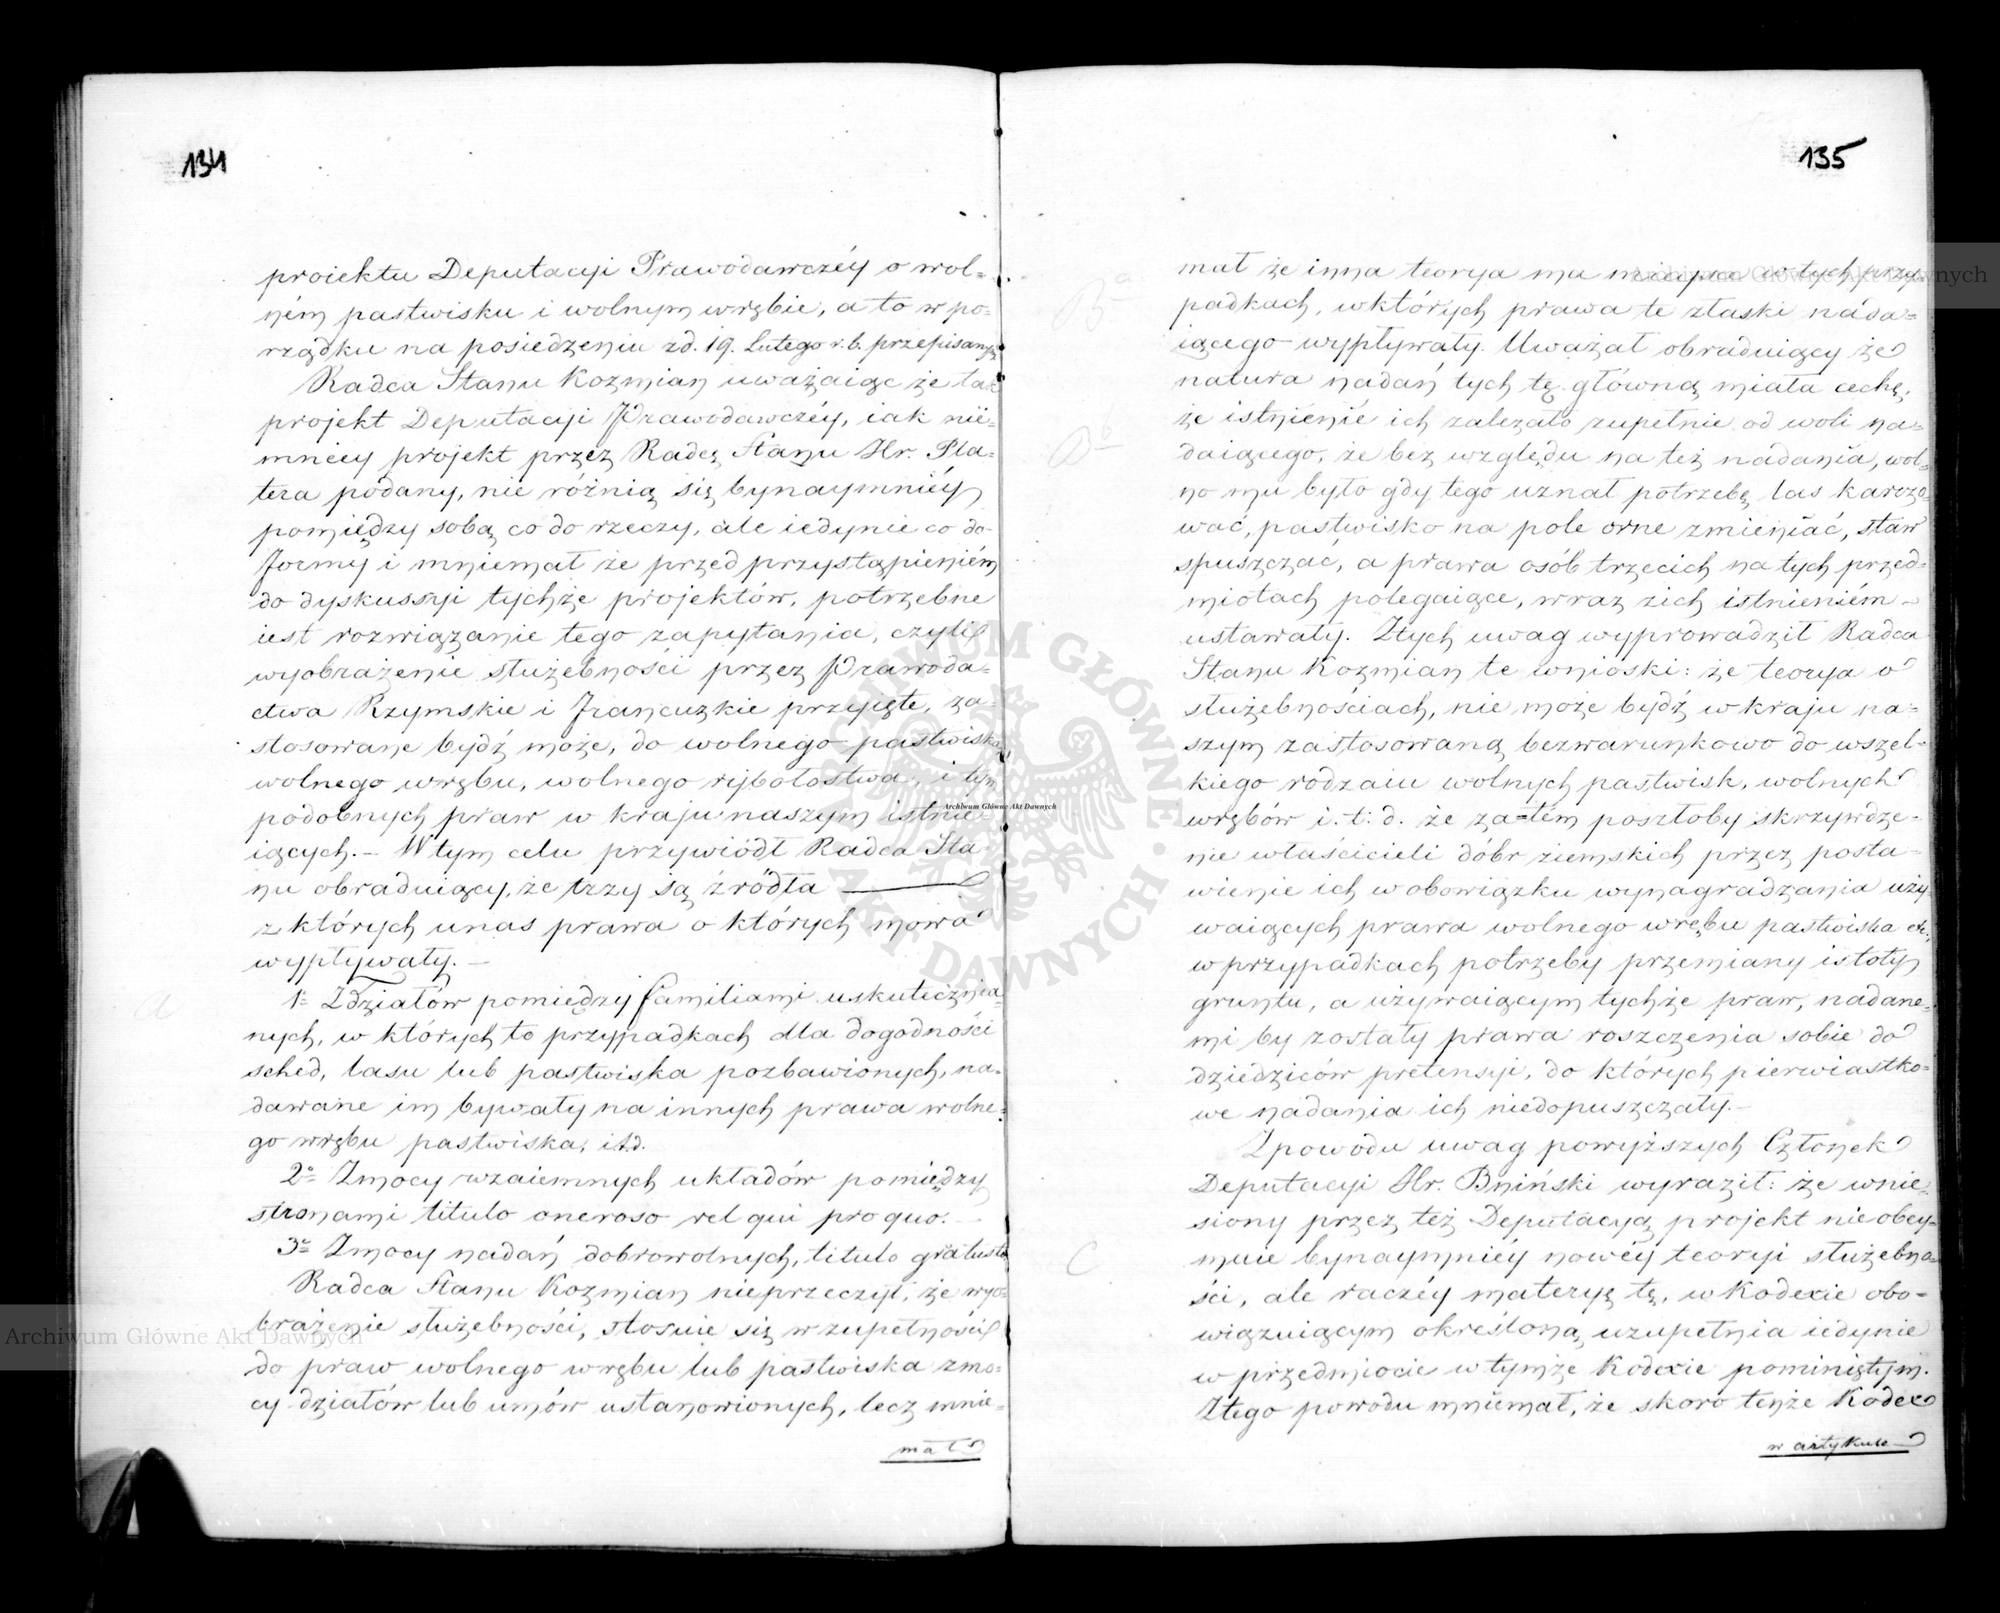 134
proiektu Deputacyi Prawodawczéy o wol=
ném pastwisku i wolnym wrębie, a to w po=
rządku na posiedzeniu z d. 19. Lutego r. b. przepisanym
Radca Stanu Kozmian uważaiąc że tak
projekt Deputacyi Prawodawczéy, iak nie=
mniéy projekt przez Radcę Stanu Hr. Pla=
tera podany, nie różnią się bynaymniéy
pomiędzy sobą co do rzeczy, ale iedynie co do
formy i mniemał że przed przystąpieniém
do dyskussyi tychże projektów, potrzebne
iest rozwiązanie tego zapytania, czyli
wyobrażenie służebności przez Prawoda=
ctwa Rzymskie i Francuzkie przejęte, za=
stosowane bydź może, do wolnego pastwiska
wolnego wrębu, wolnego rybołostwa, i tym
podobnych praw w kraju naszym istnie=
iących. – W tym celu przywiódł Radca Sta
nu obraduiący, że trzy są źródła
z których u nas prawa o których mowa
wypływały. –
a
1º Z działów pomiędzy familiami uskutecznia=
nych, w których to przypadkach dla dogodności
sched, lasu lub pastwiska pozbawionych, na=
dawane im bywały na innych prawa wolne=
go wrębu pastwiska, itd.
2º Z mocy wzaiemnych układów pomiędzy
stronami titulo oneroso vel qui pro quo. –
3º Z mocy nadań dobrowolnych, titulo gratuito
Radca Stanu Kozmian nieprzeczył, że wyo=
brażenie służebności, stosuie się w zupełności
do praw wolnego wrębu lub pastwiska z mo=
cy działów lub umów ustanowionych, lecz mnie=
mał
135
Ba
mał że inna teorya ma mieysce w tych przy
padkach, w których prawa te z łaski náda=
iącego wypływały. Uważał obraduiący że
natura nadań tych tę główną miała cechę,
Bb
że istnienie ich zależało zupełnie od woli na=
daiącego, że bez względu na też nádania, wol=
no mu było gdy tego uznał potrzebę las karczo=
wać, pastwisko na pole orne zmieniać, staw
spuszczać, a prawa osób trzecich na tych przed=
miotach polegaiące, wraz z ich istnieniém –
ustawały. Z tych uwag wyprowadził Radca
Stanu Kozmian te wnioski: że teorya o
służebnościach, nie może bydź w kraju na=
szym zastosowaną bezwarunkowo do wszel=
kiego rodzaiu wolnych pastwisk, wolnych
wrębów i. t. d. że za=tém poszłoby skrzywdze=
nie właścicieli dóbr ziemskich przez posta=
wienie ich w obowiązku wynagradzania uży=
waiących prawa wolnego wrębu pastwiska etc.,
w przypadkach potrzeby przemiany istoty
gruntu, a używaiącym tychże praw, nadane=
mi by zostały prawa roszczenia sobie do
dziedziców pretensyi, do których pierwiastko=
we nadania ich niedopuszczały. –
Z powodu uwag powyższych Członek
Deputacyi Hr. Bniński wyraził: że wnie=
siony przez też Deputacyą projekt nie obey=
C
muie bynaymniéy nowéy teoryi służebno=
ści, ale raczéy materyę tę, w Kodexie obo=
wiązuiącym określoną uzupełnia iedynie
w przedmiocie w tymże Kodexie pominiętym.
Z tego powodu mniemał, że skoro tenże Kodex
w artykule
Archiwum Główne Akt Dawnych
Archiwum Główne Akt Dawnych
Archiwum Główne Akt Dawnych
ARCHIWUM GŁÓWNE AKT DAWNYCH